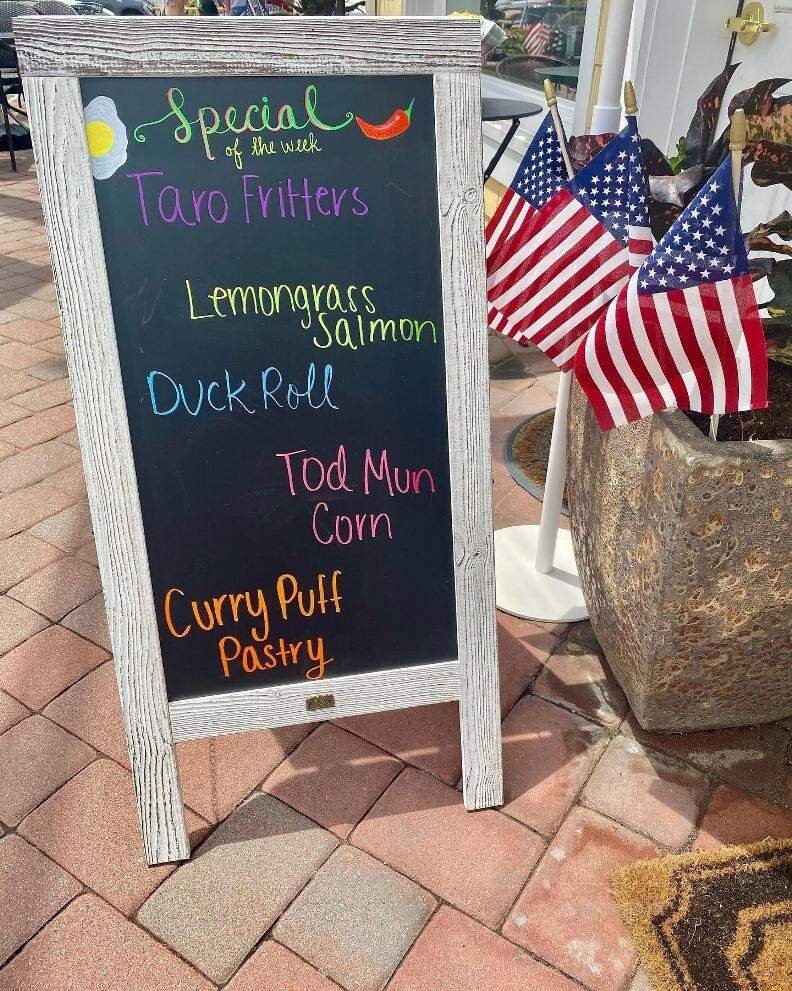 Special
of the week
Taro Fritters
Lemongrass
Salmon
Duck Roll
Tod Mun
Corn
Curry Puff
Pastry